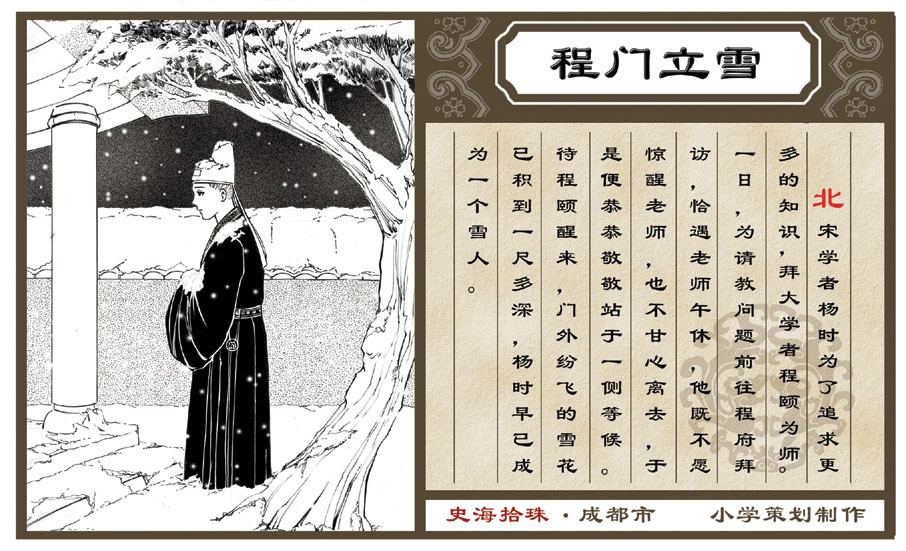 程门立雪
北宋学者杨时为了追求更
多的知识，拜大学者程颐为师。
一日，为请教问题前往程府拜
访，恰遇老师午休，他既不愿
惊醒老师，也不甘心离去，于
是便恭恭敬敬站于一侧等候。
待程颐醒来，门外纷飞的雪花
已积到一尺多深，杨时早已成
为一个雪人。
史海拾珠·成都市 小学策划制作